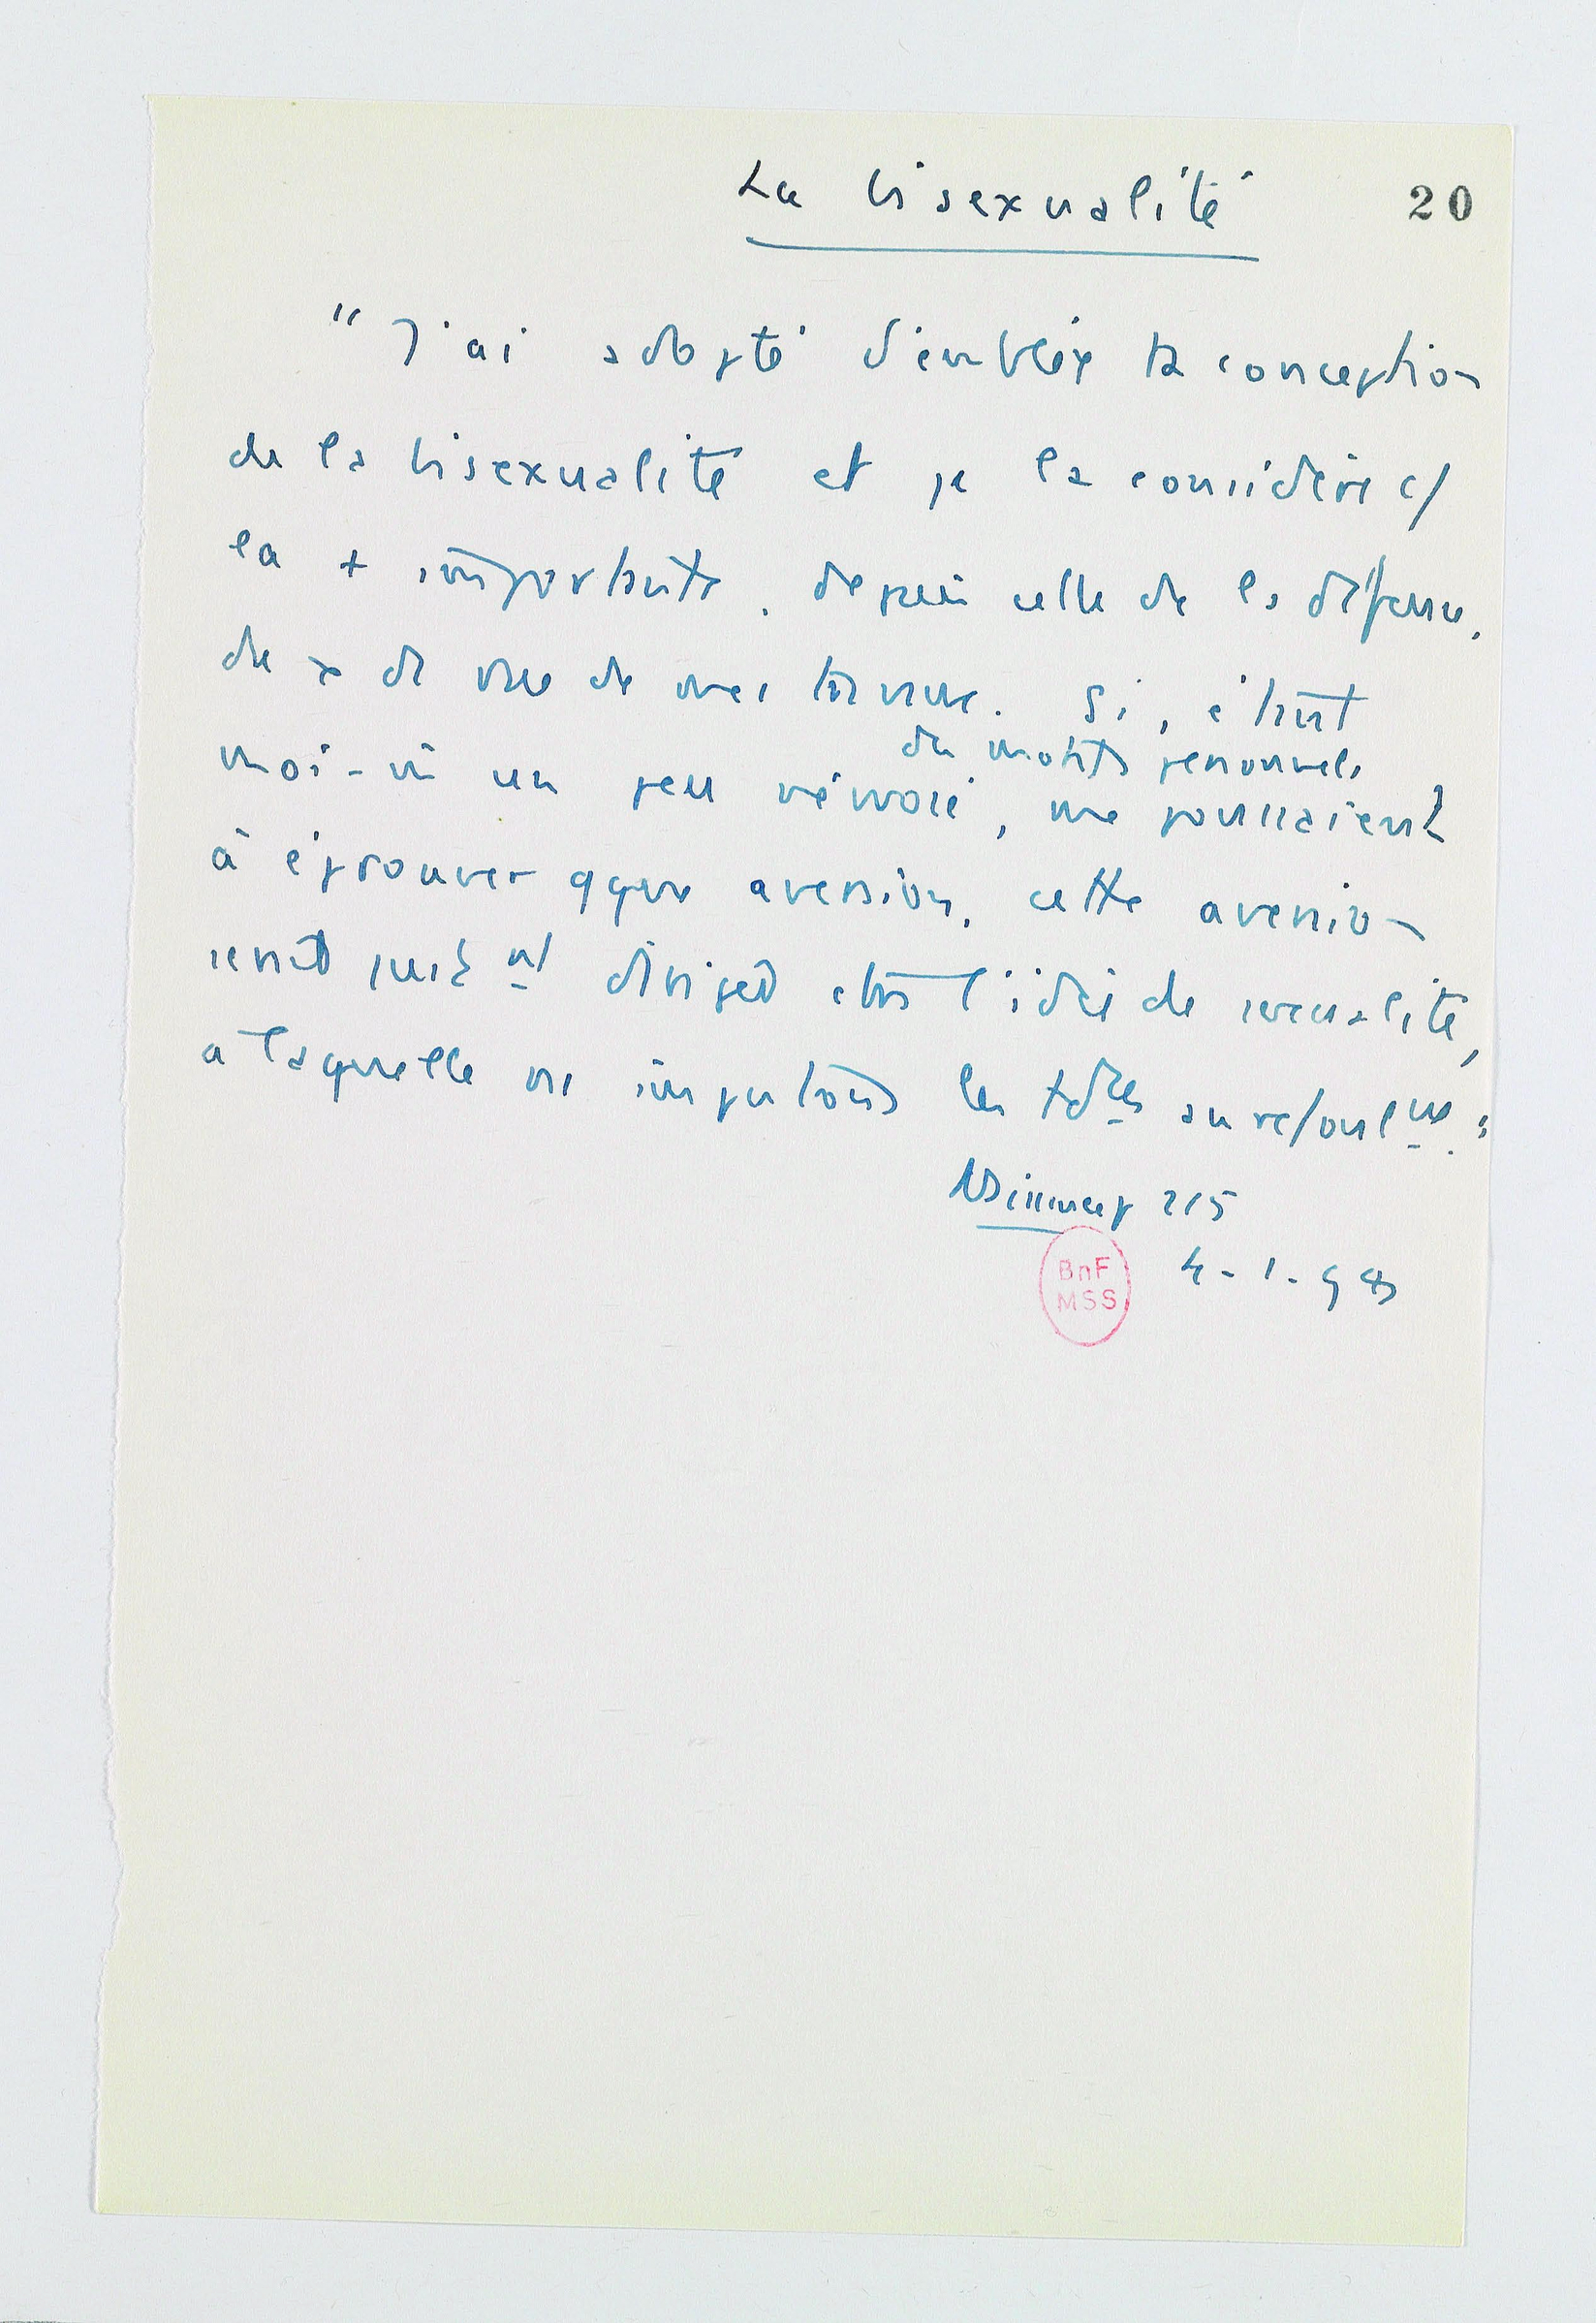 La bisexualité
20
" J'ai adopté d'emblée ta conception
de la bisexualité et je la considère c/
la + importante, depuis celle de la défense,
de x de vue de mes travaux. Si, étant
des motifs personnels
moi-m̄ un peu névrosé, me poussaient
à éprouver qque aversion, cette aversion
serait dirigée l'idée de sexualité,
à laquelle ns imputons les tdces au refoulmt. "
Naissance 215
4-1-98
BnF
MSS